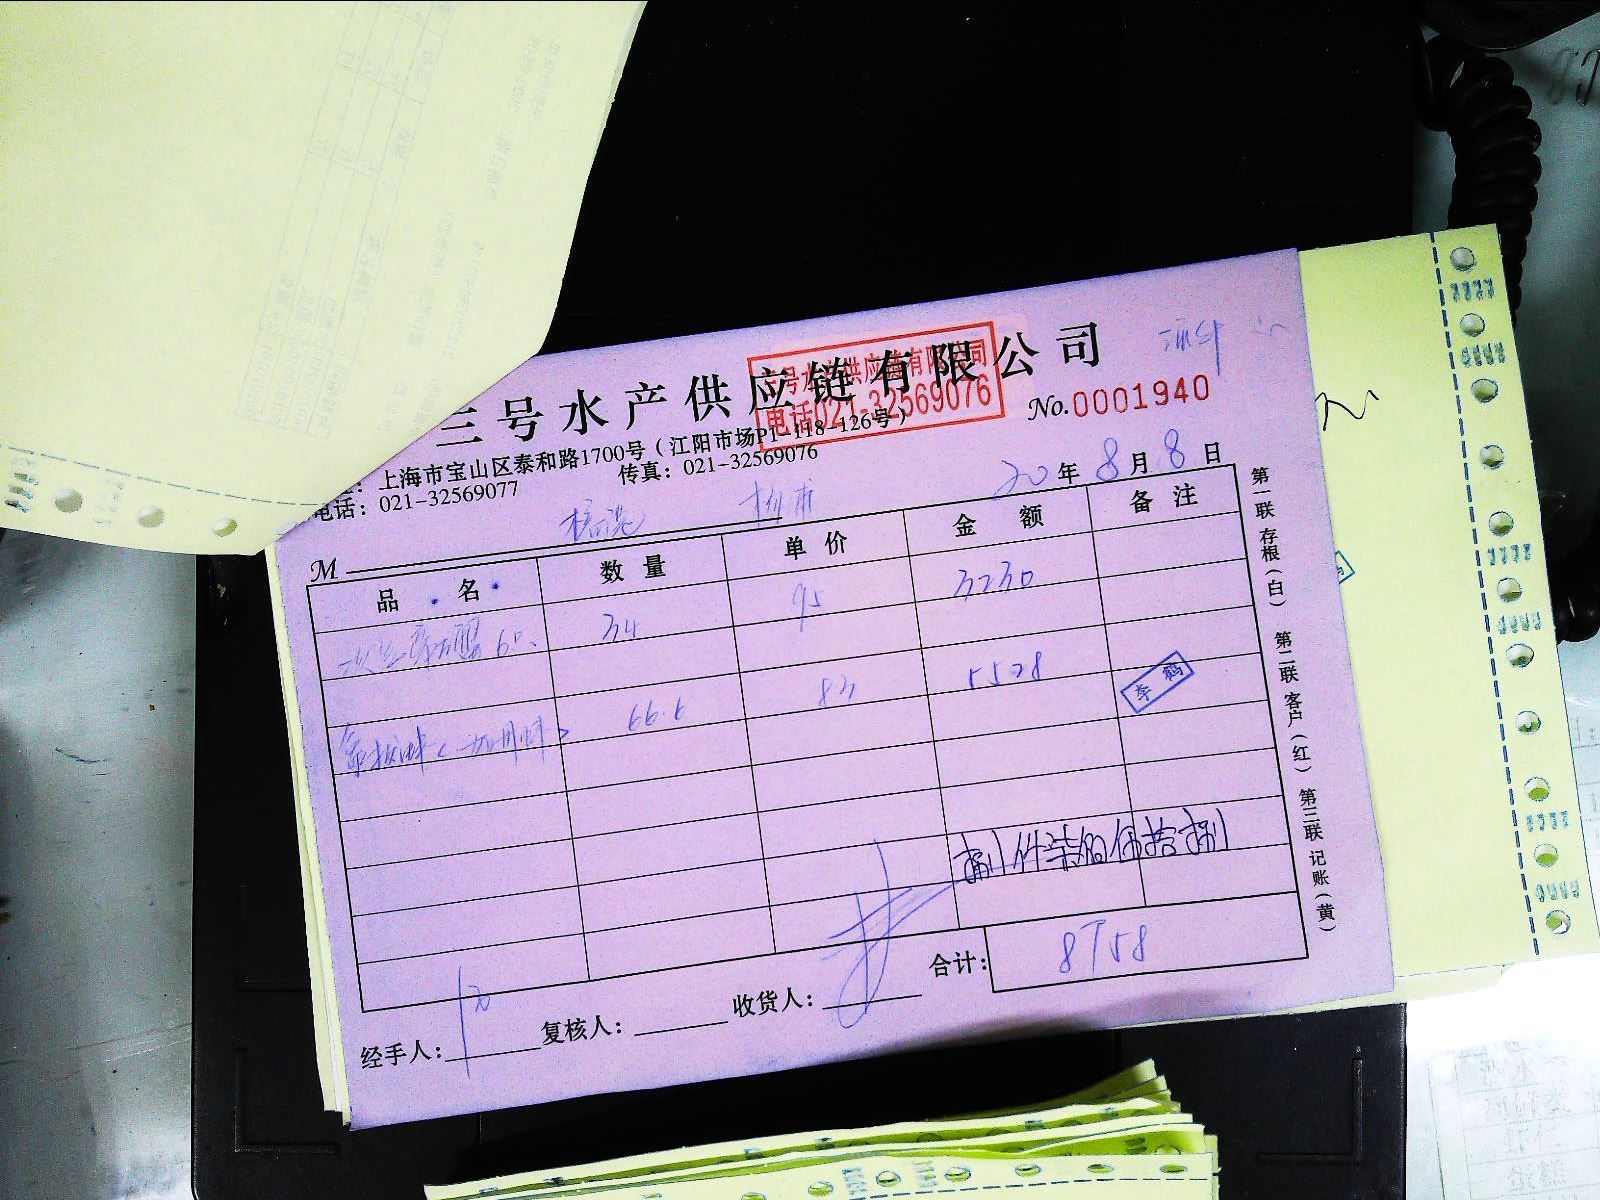 三号水产供应链有限公司
三号水产供应链有限公司
电话021-32569076
No.0001940
上海市宝山区泰和路1700号(江阳市场P1-118-126号)
电话：021-32569077 传真：021-32569076
20年8月8日
M
品名 数量 单价 金额 备注
6只 34 95 3230
66.6 83 5528
李鹤
捌仟柒佰伍拾捌
合计：8758
经手人： 复核人： 收货人：
第一联 存根(白) 第二联 客户(红) 第三联 记账(黄)